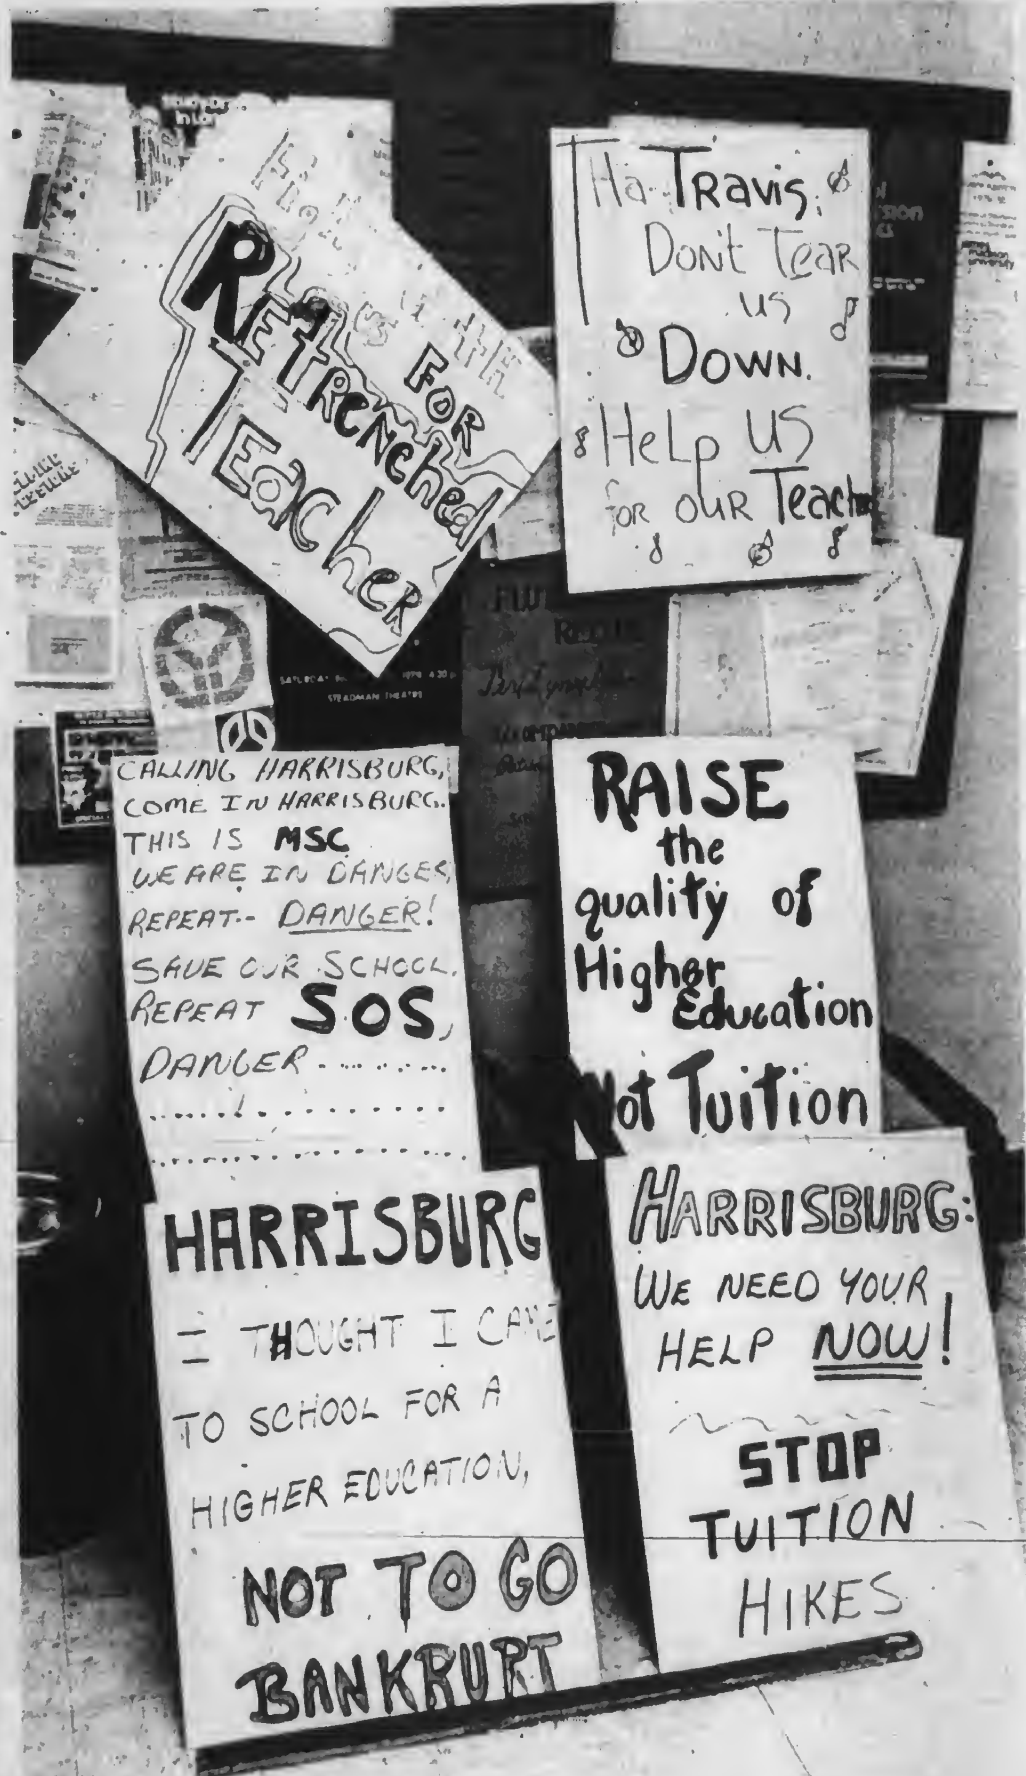 FOR
RETRENCHED
TEACHER
Ha-TRAVIS,
DON'T TEAR
US
DOWN.
HELP US
FOR OUR
SATURDAY
STEADMAN THEATRE
CALLING HARRISBURG,
COME IN HARRISBURG.
THIS IS MSC
WE ARE IN DANGER,
REPEAT-- DANGER!
SAVE OUR SCHOOL.
REPEAT S.O.S,
DANGER..........
RAISE
the
quality of
Higher
Education
Not Tuition
HARRISBURG
I THOUGHT I CAME
TO SCHOOL FOR A
HIGHER EDUCATION,
NOT TO GO
BANKRUPT
HARRISBURG:
WE NEED YOUR
HELP NOW!
STOP
TUITION
HIKES